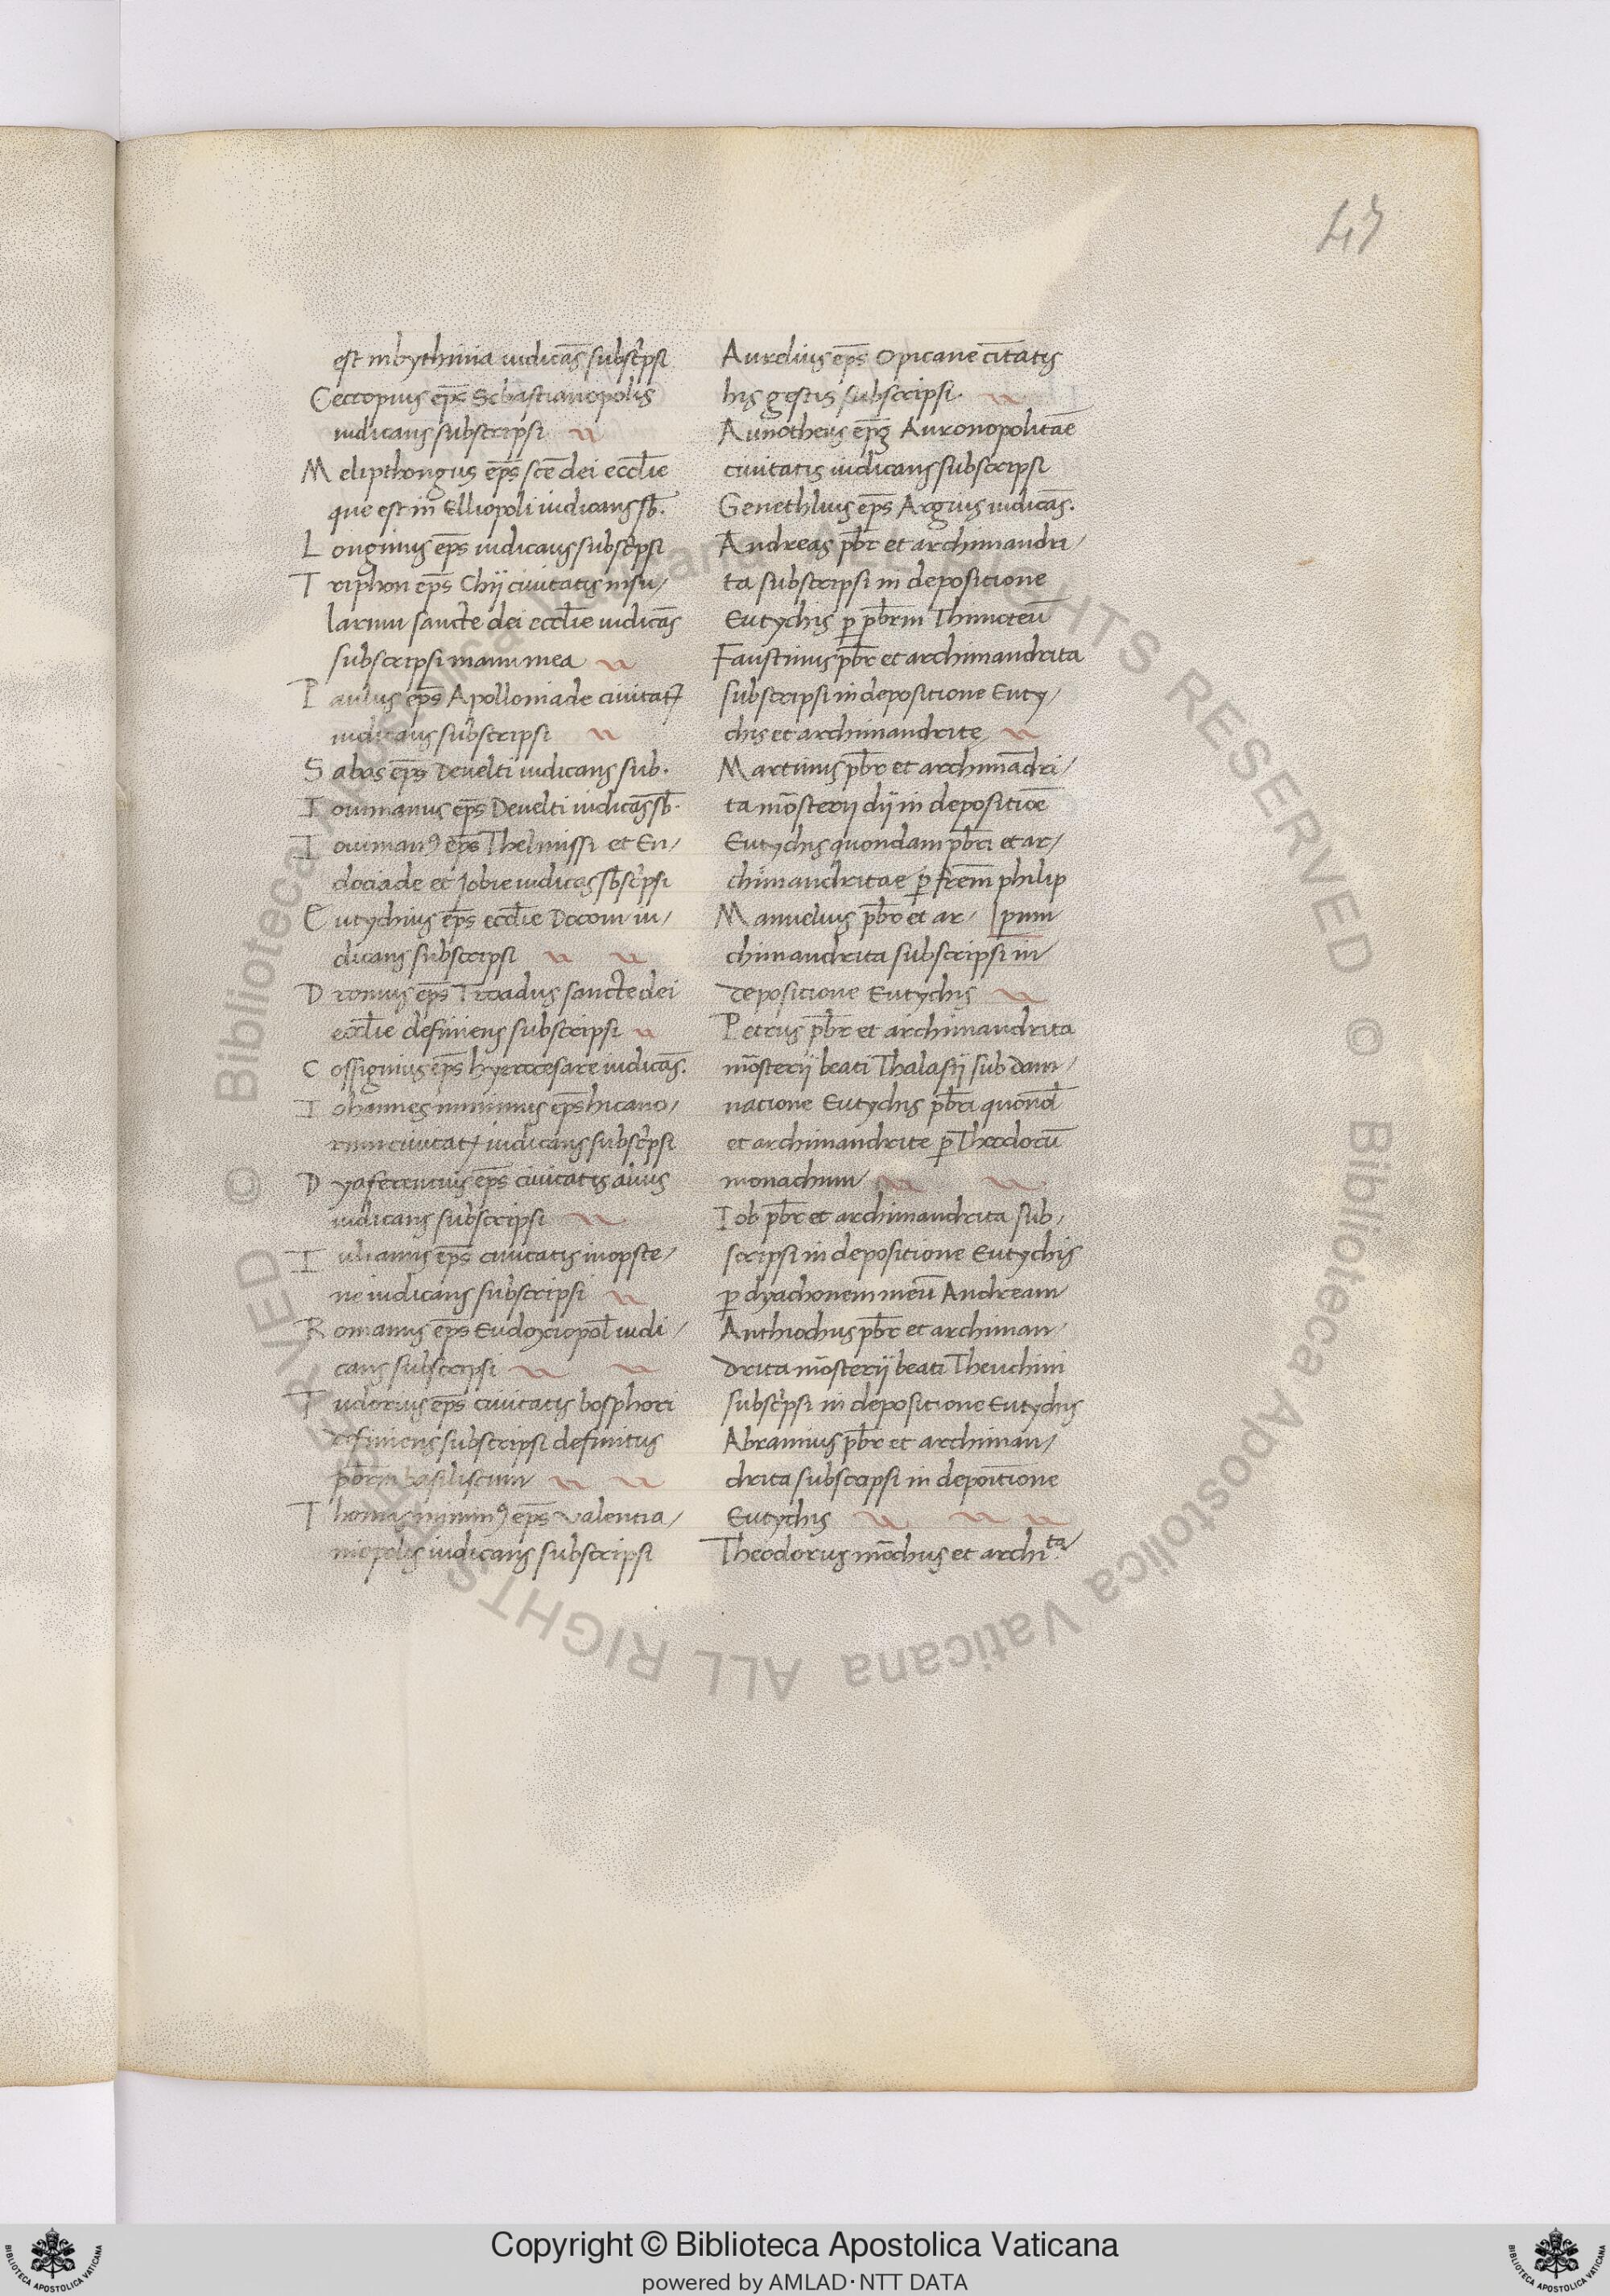 47
est in bythinia iudicās subsc͛psi
Cecropius ep̄s Sebastianopolis
iudicans subscripsi
Melipthongus ep̄s sc̄e dei eccl̄ie
que est in Elliopoli iudicans sb̄.
Longinus ep̄s iudicans subsc͛psi
Triphon ep̄s Chij ciuitatis insu/
larum sancte dei eccl̄ie iudicās
subscripsi manu mea
Paulus ep̄s Apolloniade ciuitatꝭ
iudicans subscripsi
Sabas ep̄s Deuelti iudicans sub.
Iouinianus ep̄s Deuelti iudicās sb̄.
Iouinianꝰ ep̄s Thelmissi et Eu/
dociade et Jobie iudicās sb̄sc͛psi
Eutychius ep̄s eccl̄ie Docom iu/
dicans subscripsi
Dronius ep̄s Troadus sancte dei
eccl̄ie definiens subscripsi
Cossignius ep̄s hyerocesare iudicās.
Iohannes minimus ep̄s hicano/
rum ciuitatꝭ iudicans subsc͛psi
Dyaferentius ep̄s ciuitatis aiuis
iudicans subscripsi
Iulianus ep̄s ciuitatis inopste/
ne iudicans subscripsi
Romanus ep̄s Eudoxiopol̄ iudi/
cans subscripsi
Tudorius ep̄s ciuitatis bosphori
definiens subscripsi definitus
pb̄rm basiliscum
Thomas minimꝰ ep̄s valentia/
niopolis iudicans subscripsi
Aurelius ep̄s Opicane ciuitatis
his gestis subscripsi.
Aunotheus ep̄s Auronopolitāe
ciuitatis iudicans subscripsi
Genethlius ep̄s Argius iudicās.
Andreas pb̄r et archimandri/
ta subscripsi in depositione
Eutychis ꝑ pb̄rm Thimoteū
Faustinus pb̄r et archimandrita
subscripsi in depositione Euty/
chis et archimandrite
Martinus pb̄r et archimādri/
ta mōsterij dij in depositiōe
Eutychis quondam pb̄ri et ar/
chimandritae ꝑ fr̄em philip
Manuelius pb̄r et ar/ pum
chimandrita subscripsi in
depositione Eutychis
Petrus pb̄r et archimandrita
mōsterij beati Thalasij sub dam/
natione Eutychis pb̄ri quond̄
et archimandrite ꝑ Theodorū
monachum
Iob pb̄r et archimandrita sub/
scripsi in depositione Eutychis
ꝑ dyachonem meū Andream
Anthiochus pb̄r et archiman/
drita mōsterij beati Theuchini
subsc͛psi in depositione Eutychis
Abramius pb̄r et archiman/
drita subscripsi in depoitione
Eutychis
Theodorus mōchus et archi.ta
Copyright © Biblioteca Apostolica Vaticana
powered by AMLAD·NTT DATA